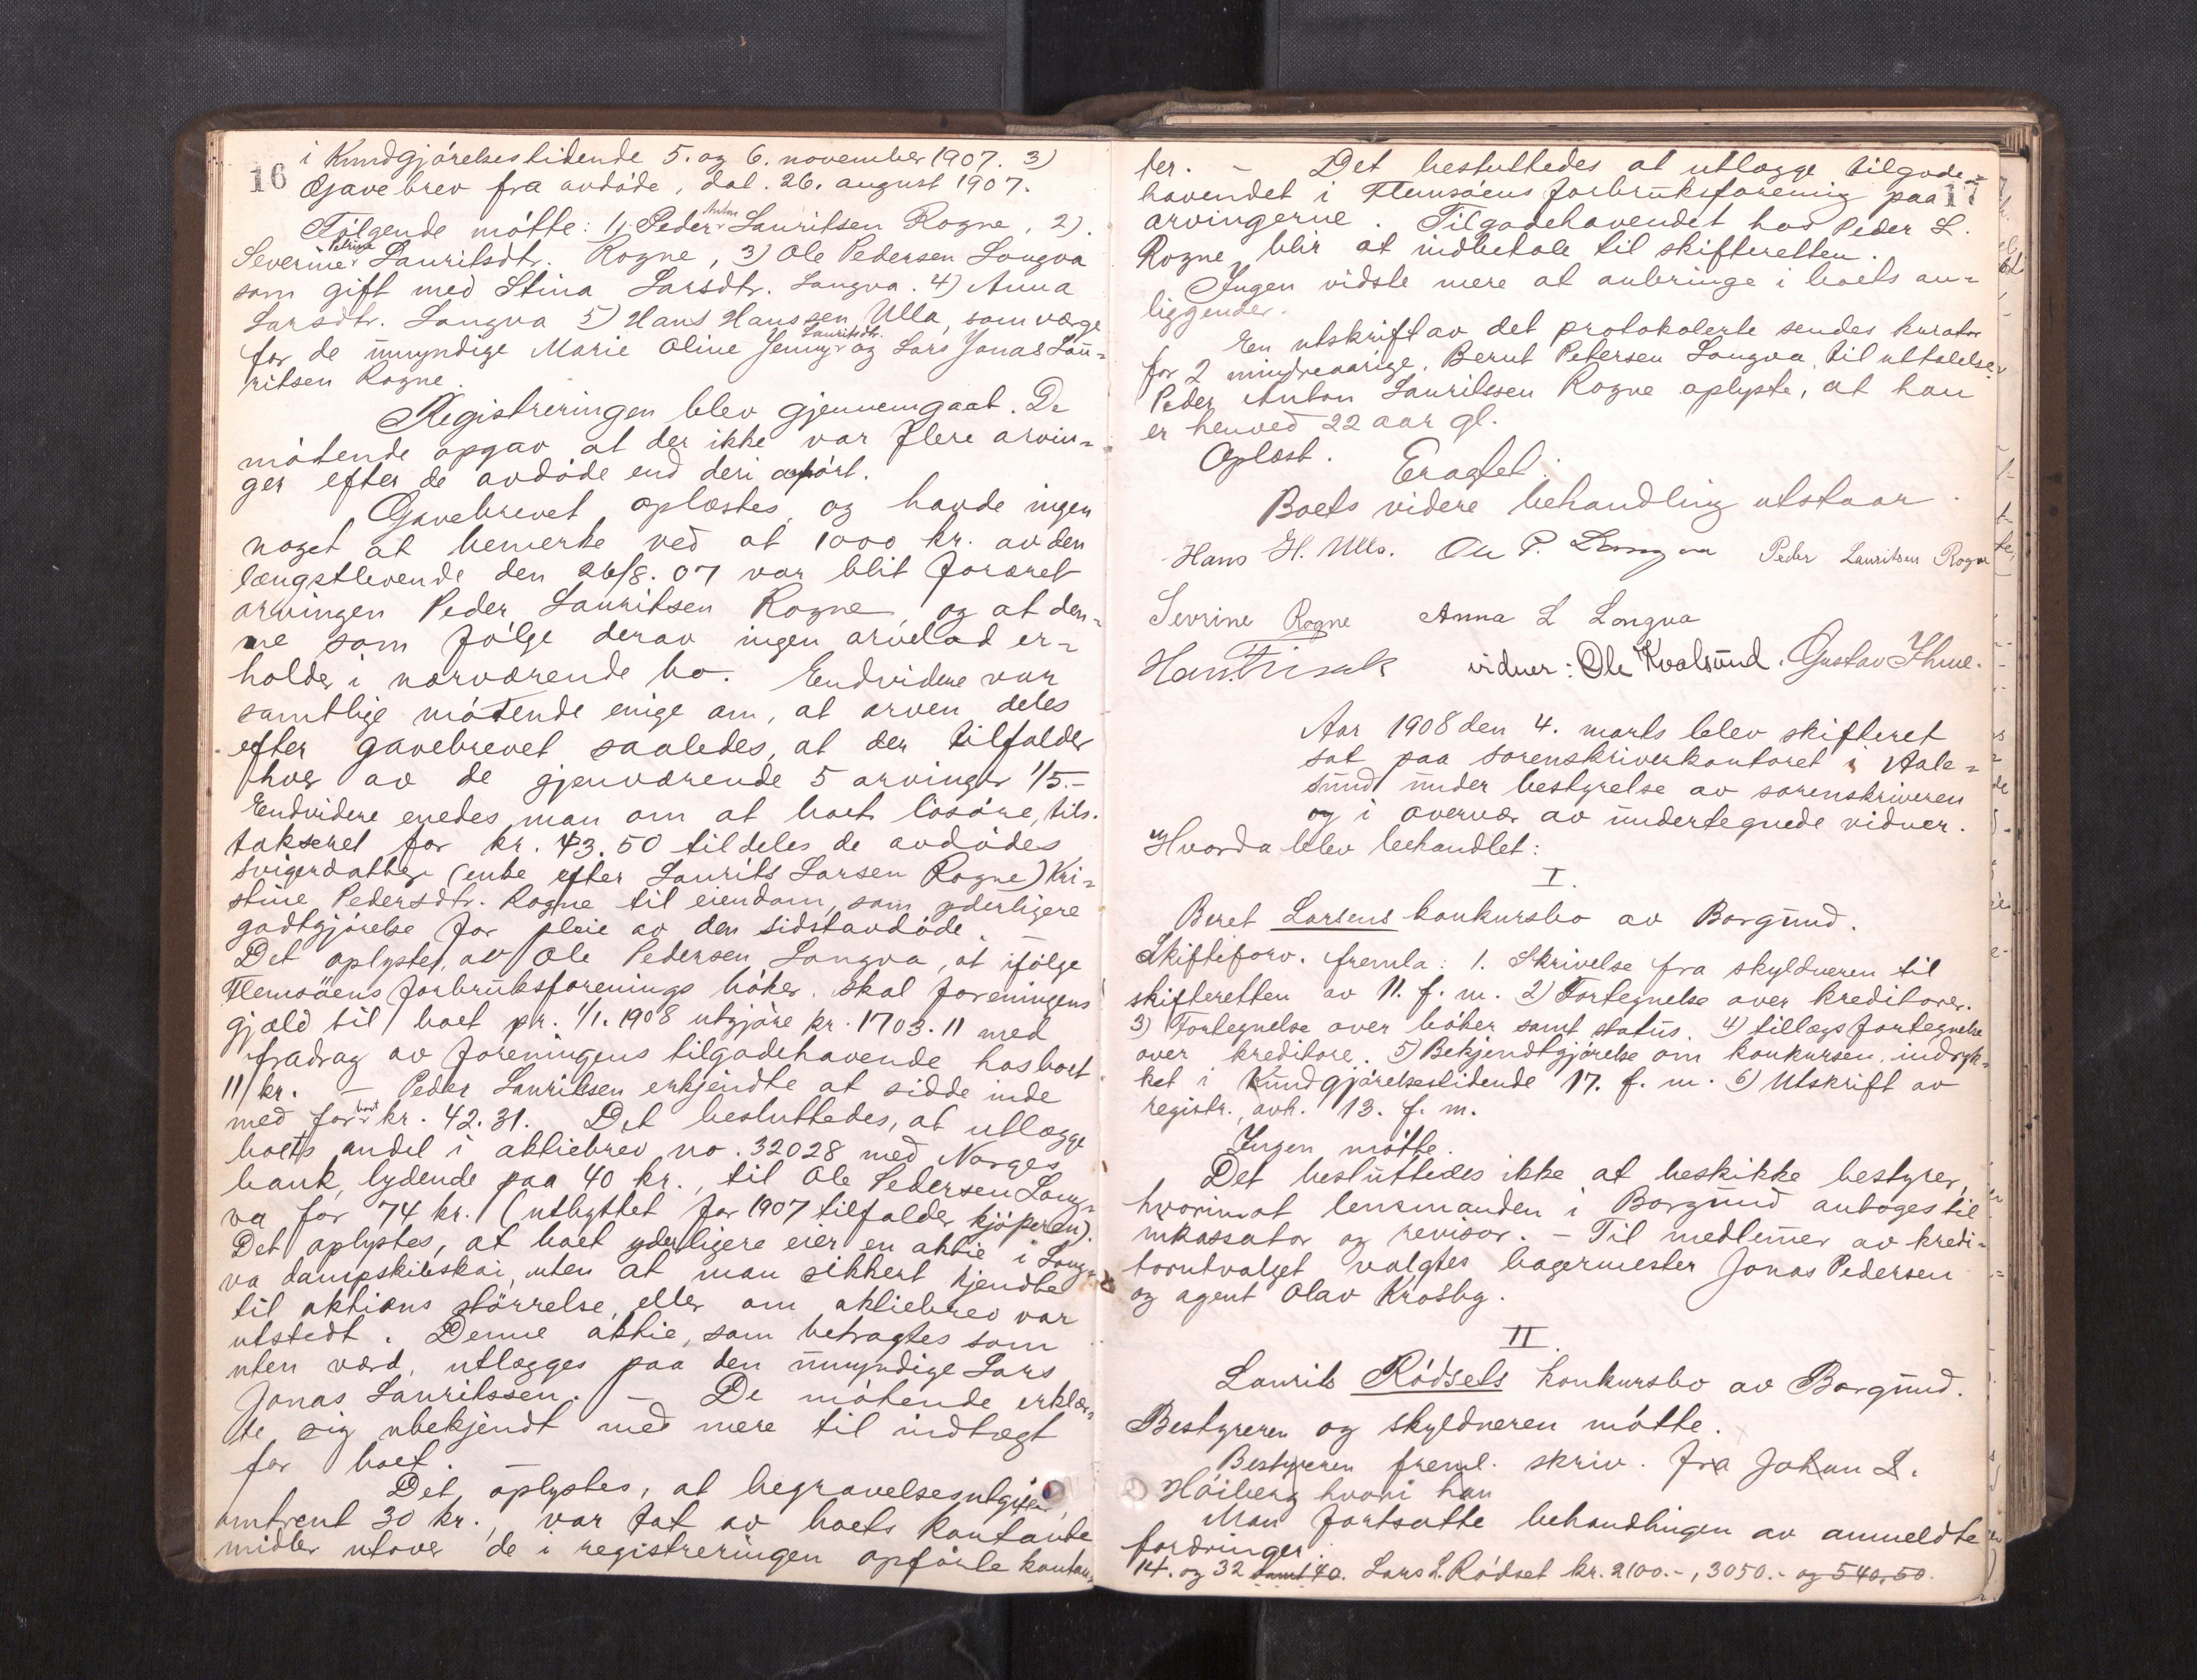 16
i Kundgjörelsestidende 5. og 6. november 1907. 3)
Gavebrev fra avdöde, dat. 26. august 1907.
Fölgende mötte: 1) Peder Anton Lauritsen Rogne, 2).
Severine Petrine Lauritsdtr. Rogne, 3) Ole Pedersen Longva
som gift med Stina Larsdtr. Longva. 4) Anna
Larsdtr. Longva 5) Hans Hanssen Ulla, som værge
for de umyndige Marie Oline Jenny Lauritsdtr. og Lars Jonas Lau-
ritsen Rogne.
Registreringen blev gjennemgaat. De
mötende opgav at der ikke var flere arvin-
ger efter de avdöde end deri anfört.
Gavebrevet oplæstes, og havde ingen
noget at bemerke ved at 1000 kr. av den
længstlevende den 26/8. 07 var blit foræret
arvingen Peder Lauritsen Rogne, og at den-
ne som fölge derav ingen arvelod er-
holder i nærværende bo. Endvidere var
samtlige mötende enige om, at arven deles
efter gavebrevet saaledes, at der tilfalder
hver av de gjenværende 5 arvinger 1/5.-
Endvidere enedes man om at boets lösöre, tils.
takseret for kr. 43.50 tildeles de avdödes
svigerdatter (enke efter Laurits Larsen Rogne) Kri-
stine Pedersdtr. Rogne til eiendom, som yderligere
godtgjörelse for pleie av den sidstavdöde.
Det oplystes, av Ole Pedersen Longva, at ifölge
Flemsöens forbruksforenings böker. skal foreningens
gjæld til boet pr. 1/1. 1908 utgjöre kr. 1703.11 med
fradrag av foreningens tilgodehavende hos boet
11 kr. - Peder Lauritsen erkjendte at sidde inde
med for boet kr. 42.31. Det besluttedes, at utlægge
boets andel i aktiebrev no. 32028 med Norges
bank, lydende paa 40 kr., til Ole Pedersen Long-
va for 74 kr. (utbyttet for 1907 tilfalder kjöperen).
Det oplystes, at boet yderligere eier en aktie i Long-
va dampskibskai, uten at man sikkert kjendte
til aktiens störrelse, eller om aktiebrev var
utstedt. Denne aktie, som betragtes som
uten værd, utlægges paa den umyndige Lars
Jonas Lauritssen. - De mötende erklær-
te sig ubekjendt med mere til indtægt
for boet.
Det oplystes, at begravelsesutgifter,
omtrent 30 kr., var tat av boets kontante
midler utover de i registreringen opförte kontan-
17
ter. - Det besluttedes at utlægge tilgode-
havendet i Flemsöens forbruksforening paa
arvingerne. Tilgodehavendet hos Peder L.
Rogne blir at indbetale til skifteretten.
Ingen vidste mere at anbringe i boets an-
liggender.
En utskrift av det protokolerte sendes kurator
for 2 mindreaarige, Bernt Petersen Longva, til uttalelse.
Peder Anton Lauritssen Rogne oplyste, at han
er henved 22 aar gl.
Oplæst. Eragtet:
Boets videre behandling utstaar.
Hans H. Ulla. Ole P. Longva Peder Lauritsen Rogne
Sevrine Rogne Anna L Longva
vidner: Ole Kvalsund. Gustav Thue.
Aar 1908 den 4. marts blev skifteret
sat paa sorenskriverkontoret i Aale-
sund under bestyrelse av sorenskriveren
og i overvær av undertegnede vidner.
Hvorda blev behandlet:
I.
Beret Larsens konkursbo av Borgund.
Skifteforv. fremla: 1. Skrivelse fra skyldneren til
skifteretten av 11. f. m. 2) Fortegnelse over kreditorer.
3) Fortegnelse over böker samt status. 4) tillægsfortegnelse
over kreditore. 5) Bekjendtgjörelse om konkursen, indryk-
ket i Kundgjörelsestidende 17. f. m. 6) Utskrift av
registr., avh. 13. f. m.
Ingen mötte.
Det besluttedes ikke at beskikke bestyrer,
hvorimot lensmanden i Borgund antoges til
inkassator og revisor. - Til medlemer av kredi-
torutvalget valgtes bagermester Jonas Pedersen
og agent Olav Krosby.
II.
Laurits Rödsets konkursbo av Borgund.
Bestyreren og skyldneren mötte.
Bestyreren freml. skriv. fra Johan L.
Höiberg hvori han
Man fortsatte behandlingen av anmeldte
fordringer:
14. og 32 samt 40. Lars L. Rödset kr. 2100.-, 3050.- og 540.50.